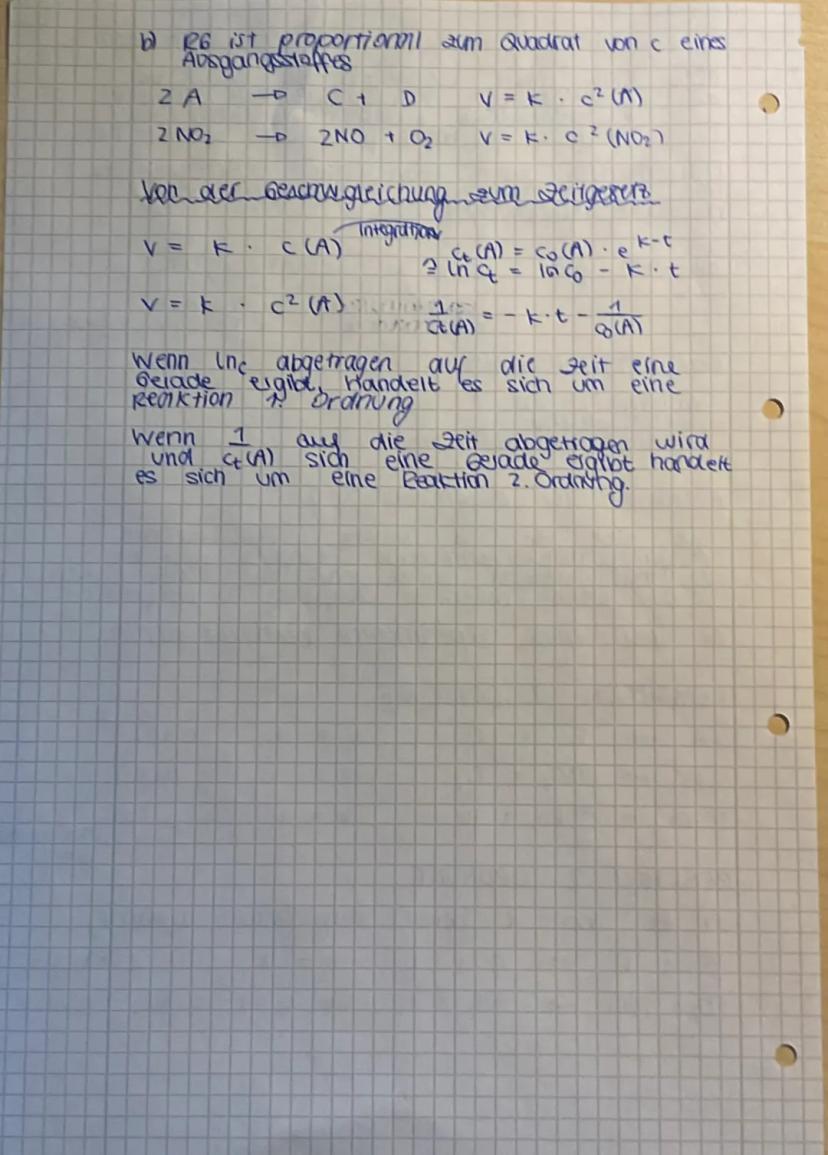 b) RG ist proportional zum Quadrat von c eines
Ausgangsstoffes
2 A → C + D V = k · c² (A)
2 NO₂ → 2NO + O₂ V = k · c² (NO₂)
Von der Geschw.gleichung zum Zeitgesetz
Integration
V = k · c (A) ct (A) = c0 (A) · e^k-t
≙ ln ct = ln c0 - k · t
V = k · c² (A) 1/ct(A) = - k · t - 1/c0(A)
Wenn lnc abgetragen auf die Zeit eine
Gerade ergibt, handelt es sich um eine
Reaktion 1. Ordnung
Wenn 1 auf die Zeit abgetragen wird
und ct (A) sich eine Gerade ergibt handelt
es sich um eine Reaktion 2. Ordnung.